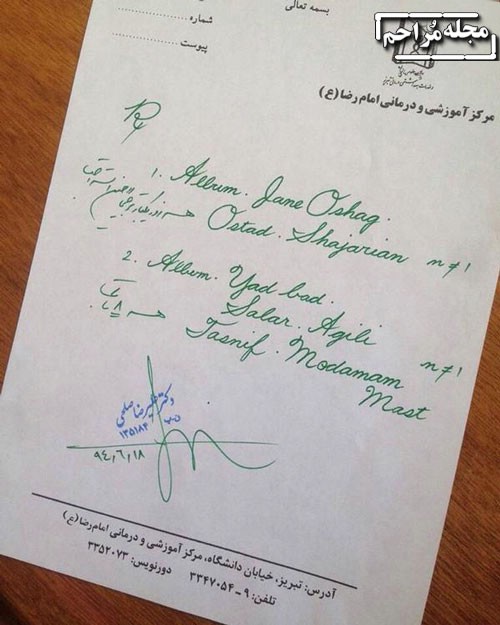 مجله مُراحم
بسمه تعالی
شماره
پیوست
مرکز آموزشی و درمانی امام رضا (ع)
1. Album. Jane Oshaq.
Ostad. Shajarian n≠1
2. Album. Yad bad.
Salar. Agili n≠1
Tasnif. Modamam
Mast
دکتر علیرضا صلحی
۱۳۵۱۸۴
۹۴,۶,۱۸
آدرس: تبریز، خیابان دانشگاه، مرکز آموزشی و درمانی امام رضا (ع)
تلفن: ۹ - ۳۳۴۷۰۵۴ دورنویس: ۳۳۵۲۰۷۳